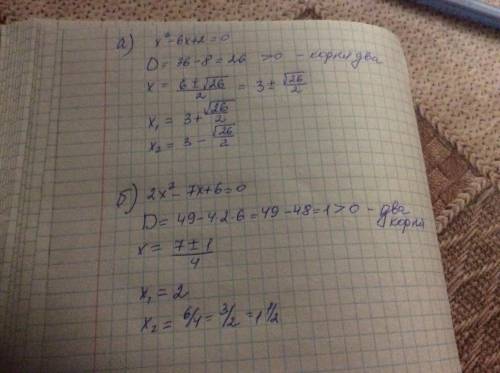 а) x²-6x+2=0
D= 36-8=26 >0 - корня два
x = 6±√26/2 = 3± √26/2
x₁ = 3+ √26/2
x₂ = 3- √26/2
б) 2x²-7x+6=0
D=49-4.2.6=49-48=1>0 - два корня
x= 7±1/4
x₁ = 2
x₂ = 6/4= 3/2 =1 1/2